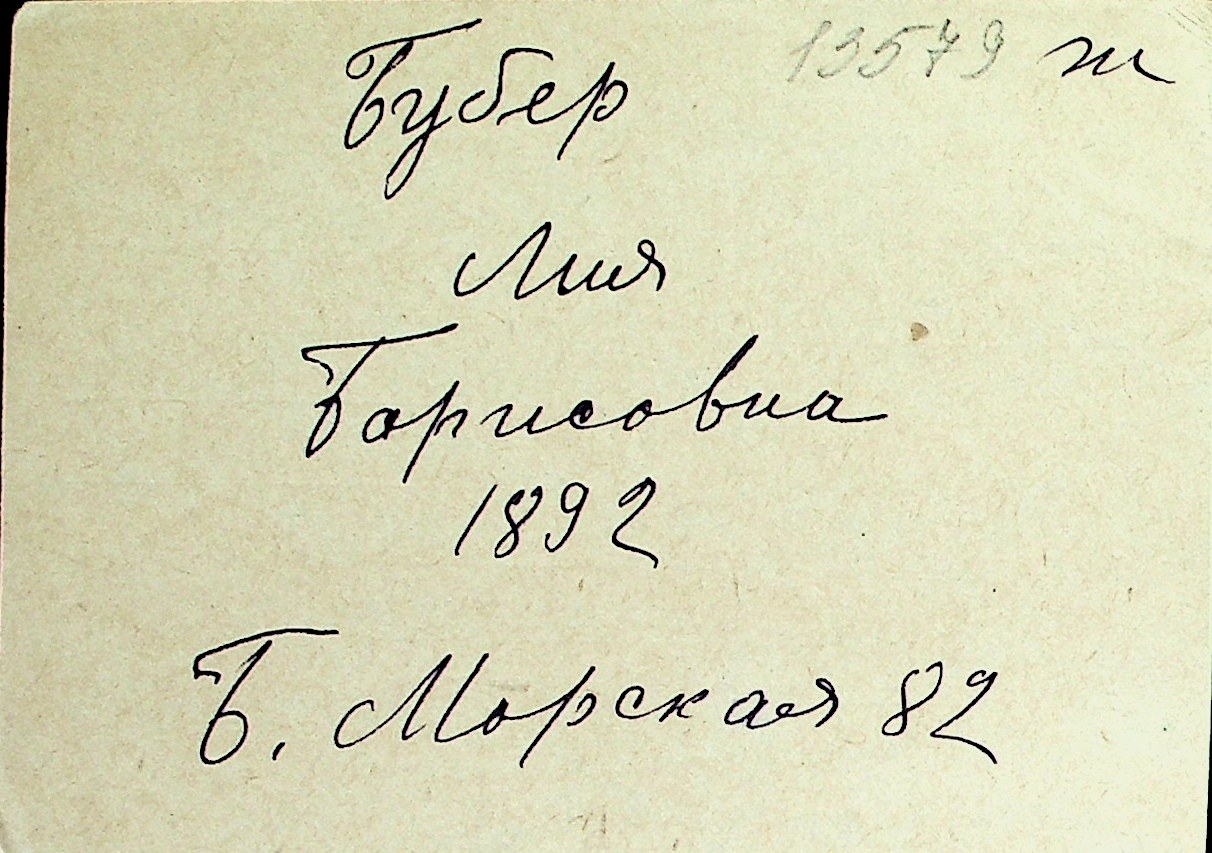 13579 ж
Бубер
Лия
Борисовна
1892
Б. Морская 82